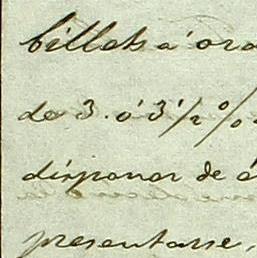 billets a' ord
de 3. ó 3 1/2 %
disponer de é
presentarse,